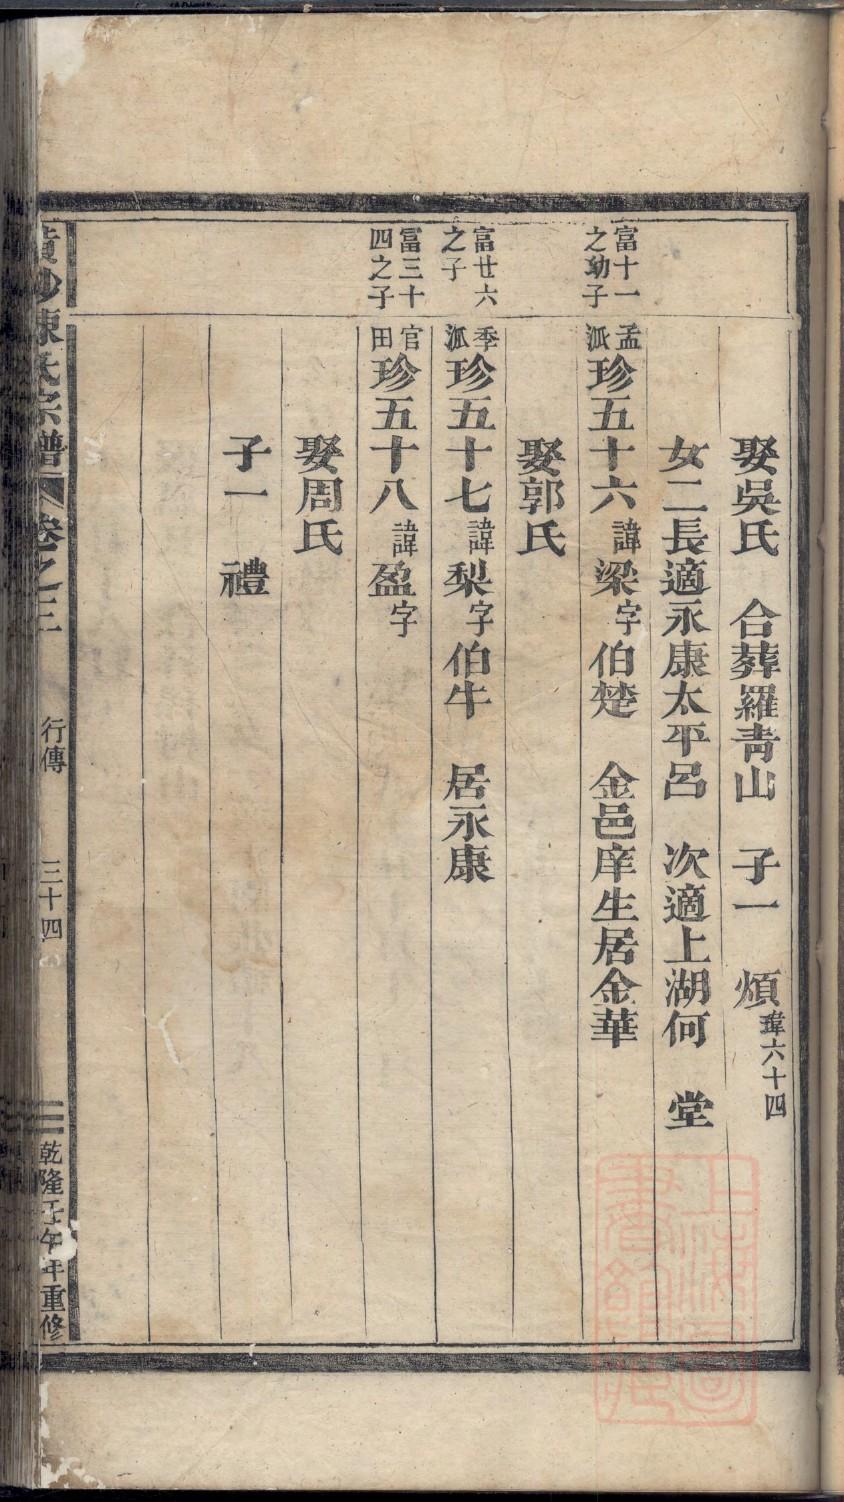 娶吳氏 合葬羅青山 子一 煩 瑋六十四
女二長適永康太平呂 次適上湖何 堂
富十一
之幼子
孟派珍五十六諱梁字伯楚 金邑庠生居金華
娶郭氏
富廿六
之子
季派珍五十七諱梨字伯牛 居永康
富三十
四之子
官田珍五十八諱盈字
娶周氏
子一 禮
陳氏宗譜 卷之三 行傳 三十四 乾隆壬午年重修
上海圖
書館藏